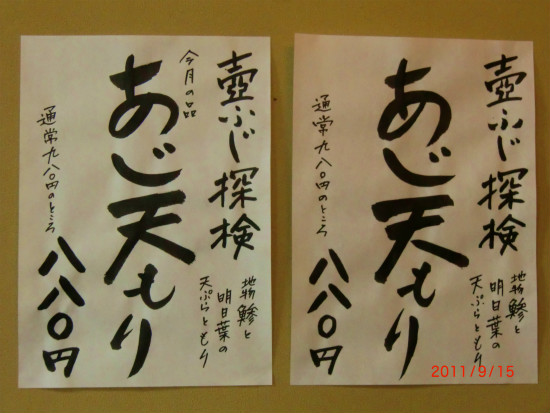 壺ふじ探検
今月の品
あじ天もり
地物鯵と
明日葉の
天ぷらともり
通常九八〇円のところ
八八〇円
壺ふじ探検
あじ天もり
地物鯵と
明日葉の
天ぷらともり
通常九八〇円のところ
八八〇円
2011/9/15